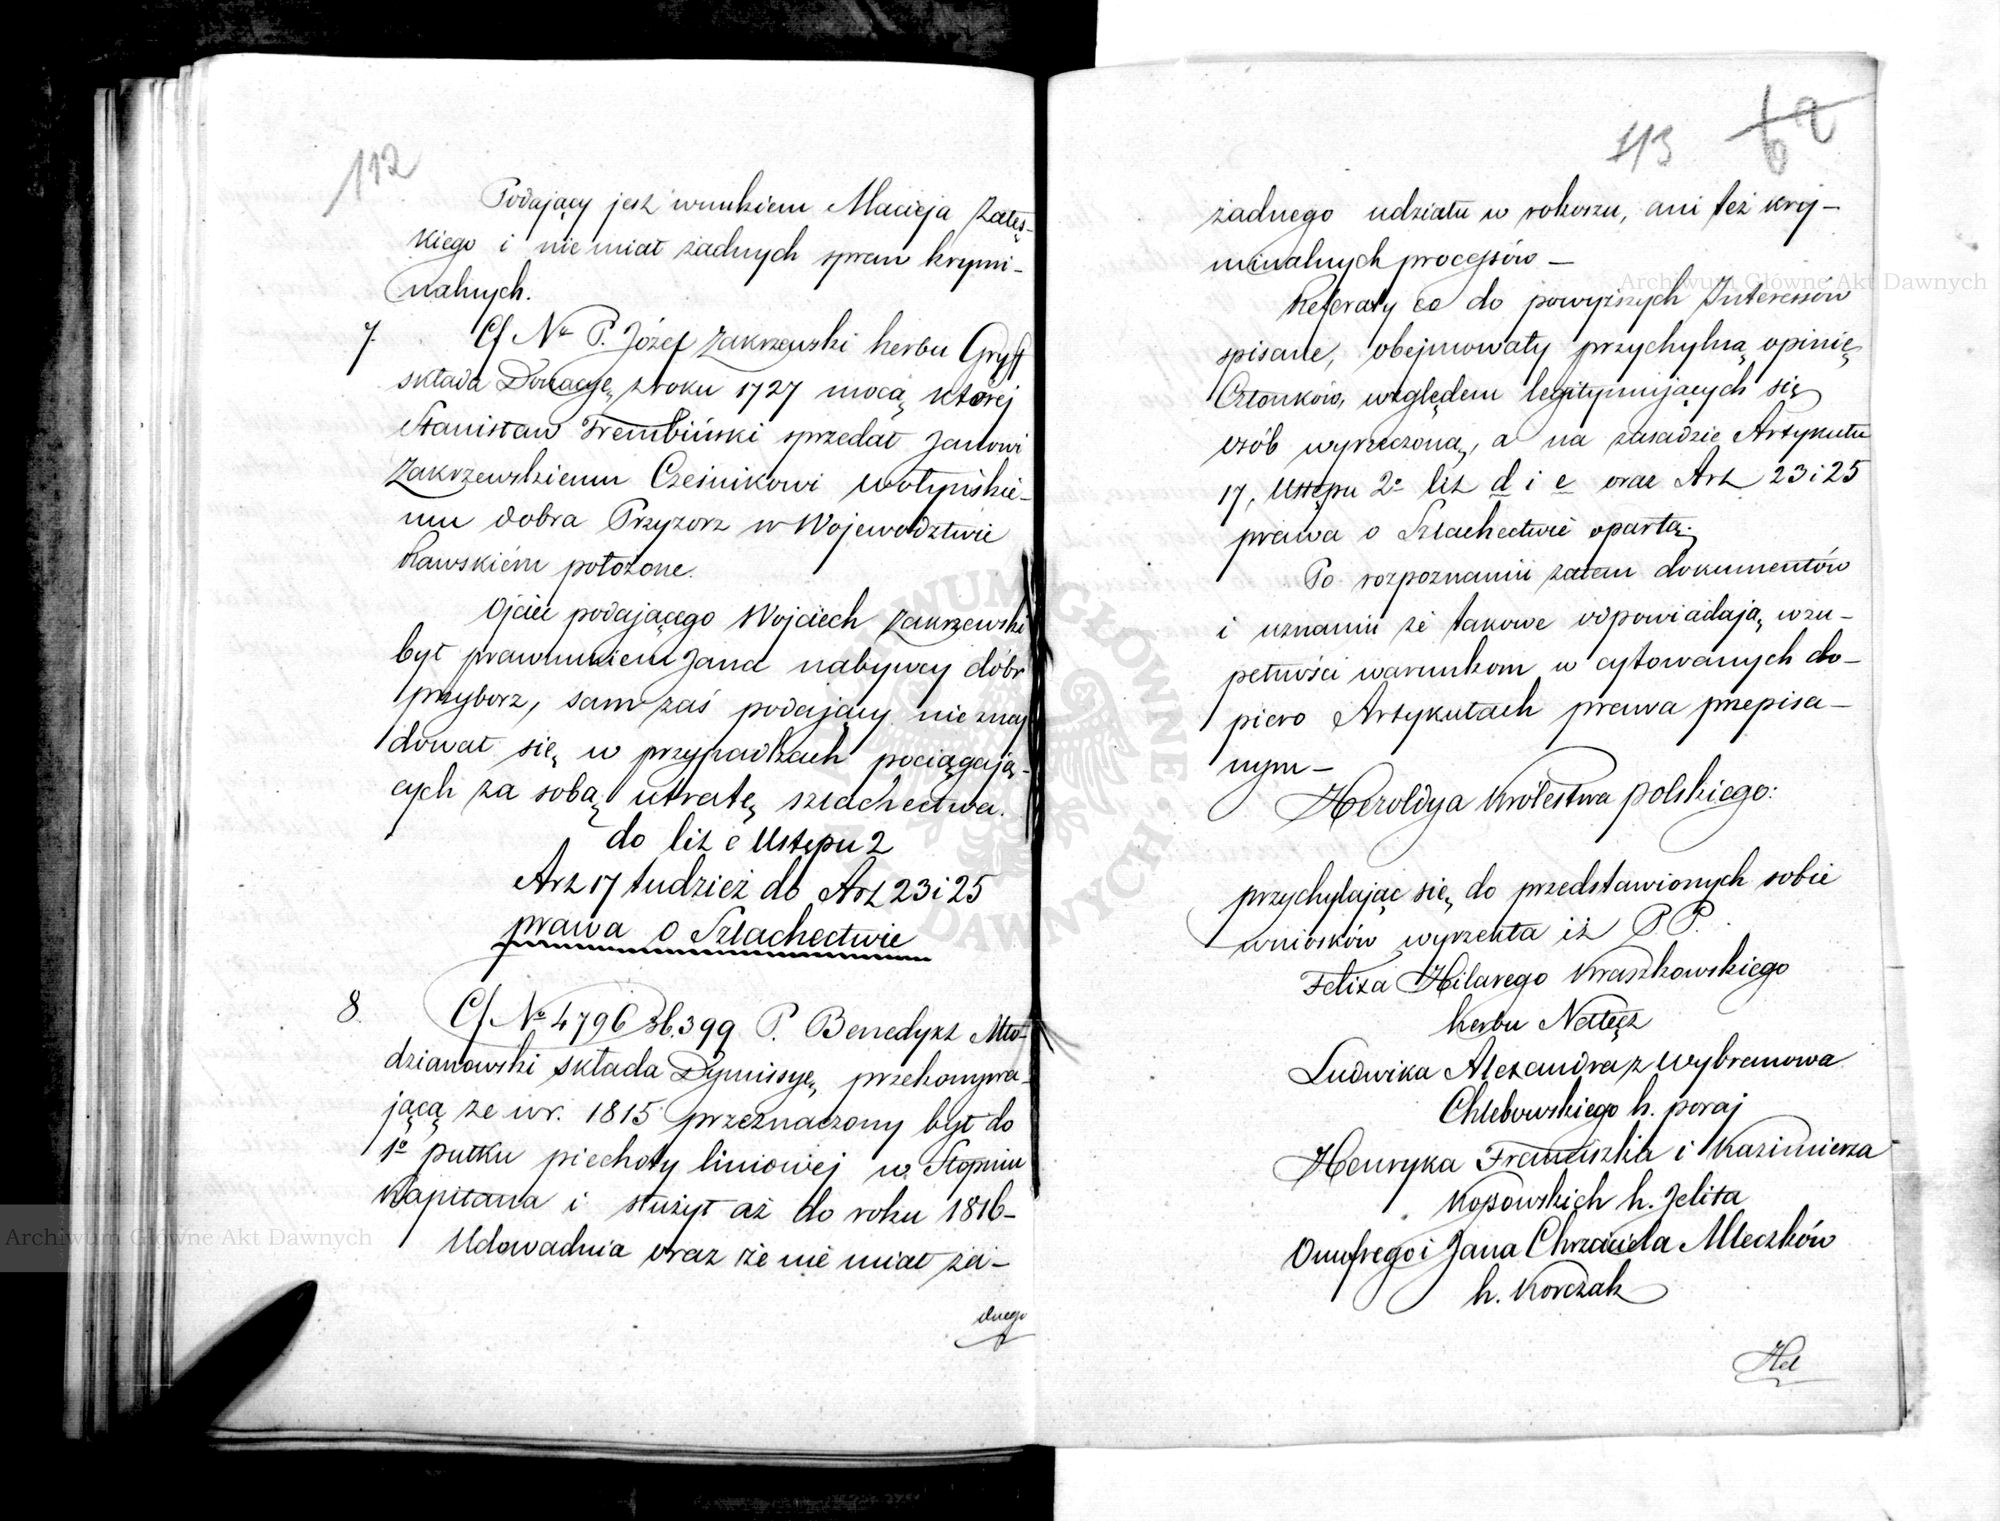 112
Podający jest wnukiem Macieja Załęs-
kiego i nie miał żadnych spraw krymi-
nalnych.
7. Cf No P. Józef Zakrzewski herbu Gryf
składa Donacyę z roku 1727 mocą której
Stanisław Trembiński sprzedał Janowi
Zakrzewskiemu Cześnikowi wołyńskie-
mu dobra Przyborz w Województwie
Rawskiém położone.
Ojciec podającego Wojciech Zakrzewski
był prawnukiem Jana nabywcy dóbr
Przyborz, sam zaś podający nie znaj
dował się w przypadkach pociągają-
cych za sobą utratę szlachectwa.
do lit e Ustępu 2
Art 17 tudzież do Art 23 i 25
prawa o Szlachectwie
8. Cf No 4796 Sb. 399 P. Benedykt Mło-
dzianowski składa Dymissyę przekonywa-
jącą że w r. 1815 przeznaczony był do
1o pułku piechoty liniowej w Stopniu
Kapitana i służył aż do roku 1816-
Udowadnia oraz że nie miał ża-
dnego
113
62
żadnego udziału w rokoszu, ani też kry-
minalnych processów -
Referaty co do powyższych Interessów
spisane, obejmowały przychylną opinię
Członków, względem legitymujących się
osób wyrzeczoną, a na zasadzie Artykułu
17, Ustępu 2o lit d i e oraz Art 23 i 25
prawa o Szlachectwie opartą.
Po rozpoznaniu zatem dokumentów
i uznaniu że takowe odpowiadają w zu-
pełności warunkom w cytowanych do-
piero Artykułach prawa przepisa-
nym -
Heroldya Królestwa polskiego:
przychylając się do przedstawionych sobie
wniosków wyrzekła iż P.P.
Felixa Hilarego Kraszkowskiego
herbu Nałęcz
Ludwika Alexandra z Wybranowa
Chlebowskiego h. poraj
Henryka Franciszka i Kazimierza
Kossowskich h. Jelita
Onufrego i Jana Chrzciciela Mleczków
h. Korczak
Hel
Archiwum Główne Akt Dawnych
Archiwum Główne Akt Dawnych
ARCHIWUM GŁÓWNE AKT DAWNYCH